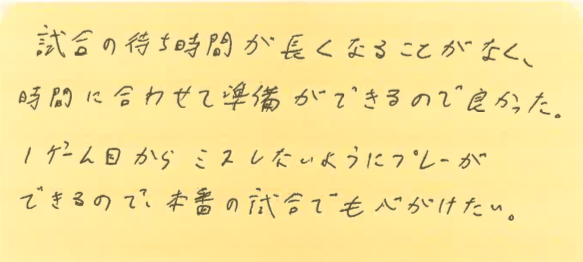 試合の待ち時間が長くなることがなく、
時間に合わせて準備ができるので良かった。
1ゲーム目からミスしないようにプレーが
できるので、本番の試合でも心がけたい。